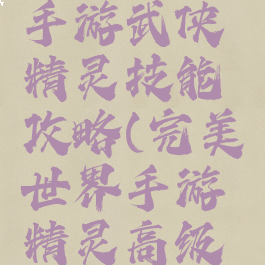 手游武侠
精灵技能
攻略(完美
世界手游
精灵高级